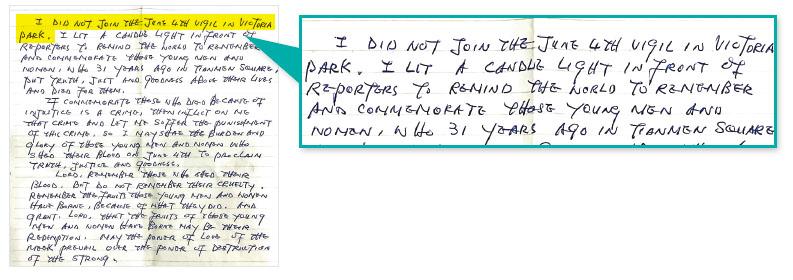 I DID NOT JOIN THE JUNE 4TH VIGIL IN VICTORIA
PARK. I LIT A CANDLE LIGHT IN FRONT OF
REPORTERS TO REMIND THE WORLD TO REMEMBER
AND COMMEMORATE THOSE YOUNG MEN AND
WOMEN, WHO 31 YEARS AGO IN TIANMEN SQUARE,
PUT TRUTH, JUST AND GOODNESS ABOVE THEIR LIVES
AND DIED FOR THEM.
IF COMMEMORATE THOSE WHO DIED BECAUSE OF
INJUSTICE IS A CRIME, THEN INFLICT ON ME
THAT CRIME AND LET ME SUFFER THE PUNISHMENT
OF THIS CRIME, SO I MAY SHARE THE BURDEN AND
GLORY OF THOSE YOUNG MEN AND WOMEN WHO
SHED THEIR BLOOD ON JUNE 4TH TO PROCLAIM
TRUTH, JUSTICE AND GOODNESS.
LORD, REMEMBER THOSE WHO SHED THEIR
BLOOD. BUT DO NOT REMEMBER THEIR CRUELTY.
REMEMBER THE FRUITS THOSE YOUNG MEN AND WOMEN
HAVE BORNE, BECAUSE OF WHAT THEY DID. AND
GRANT. LORD, THAT THE FRUITS OF THOSE YOUNG
MEN AND WOMEN HAVE BORNE MAY BE THEIR
REDEMPTION. MAY THE POWER OF LOVE OF THE
MEEK PREVAIL OVER THE POWER OF DESTRUCTION
OF THE STRONG.
I DID NOT JOIN THE JUNE 4TH VIGIL IN VICTORIA
PARK. I LIT A CANDLE LIGHT IN FRONT OF
REPORTERS TO REMIND THE WORLD TO REMEMBER
AND COMMEMORATE THOSE YOUNG MEN AND
WOMEN, WHO 31 YEARS AGO IN TIANMEN SQUARE